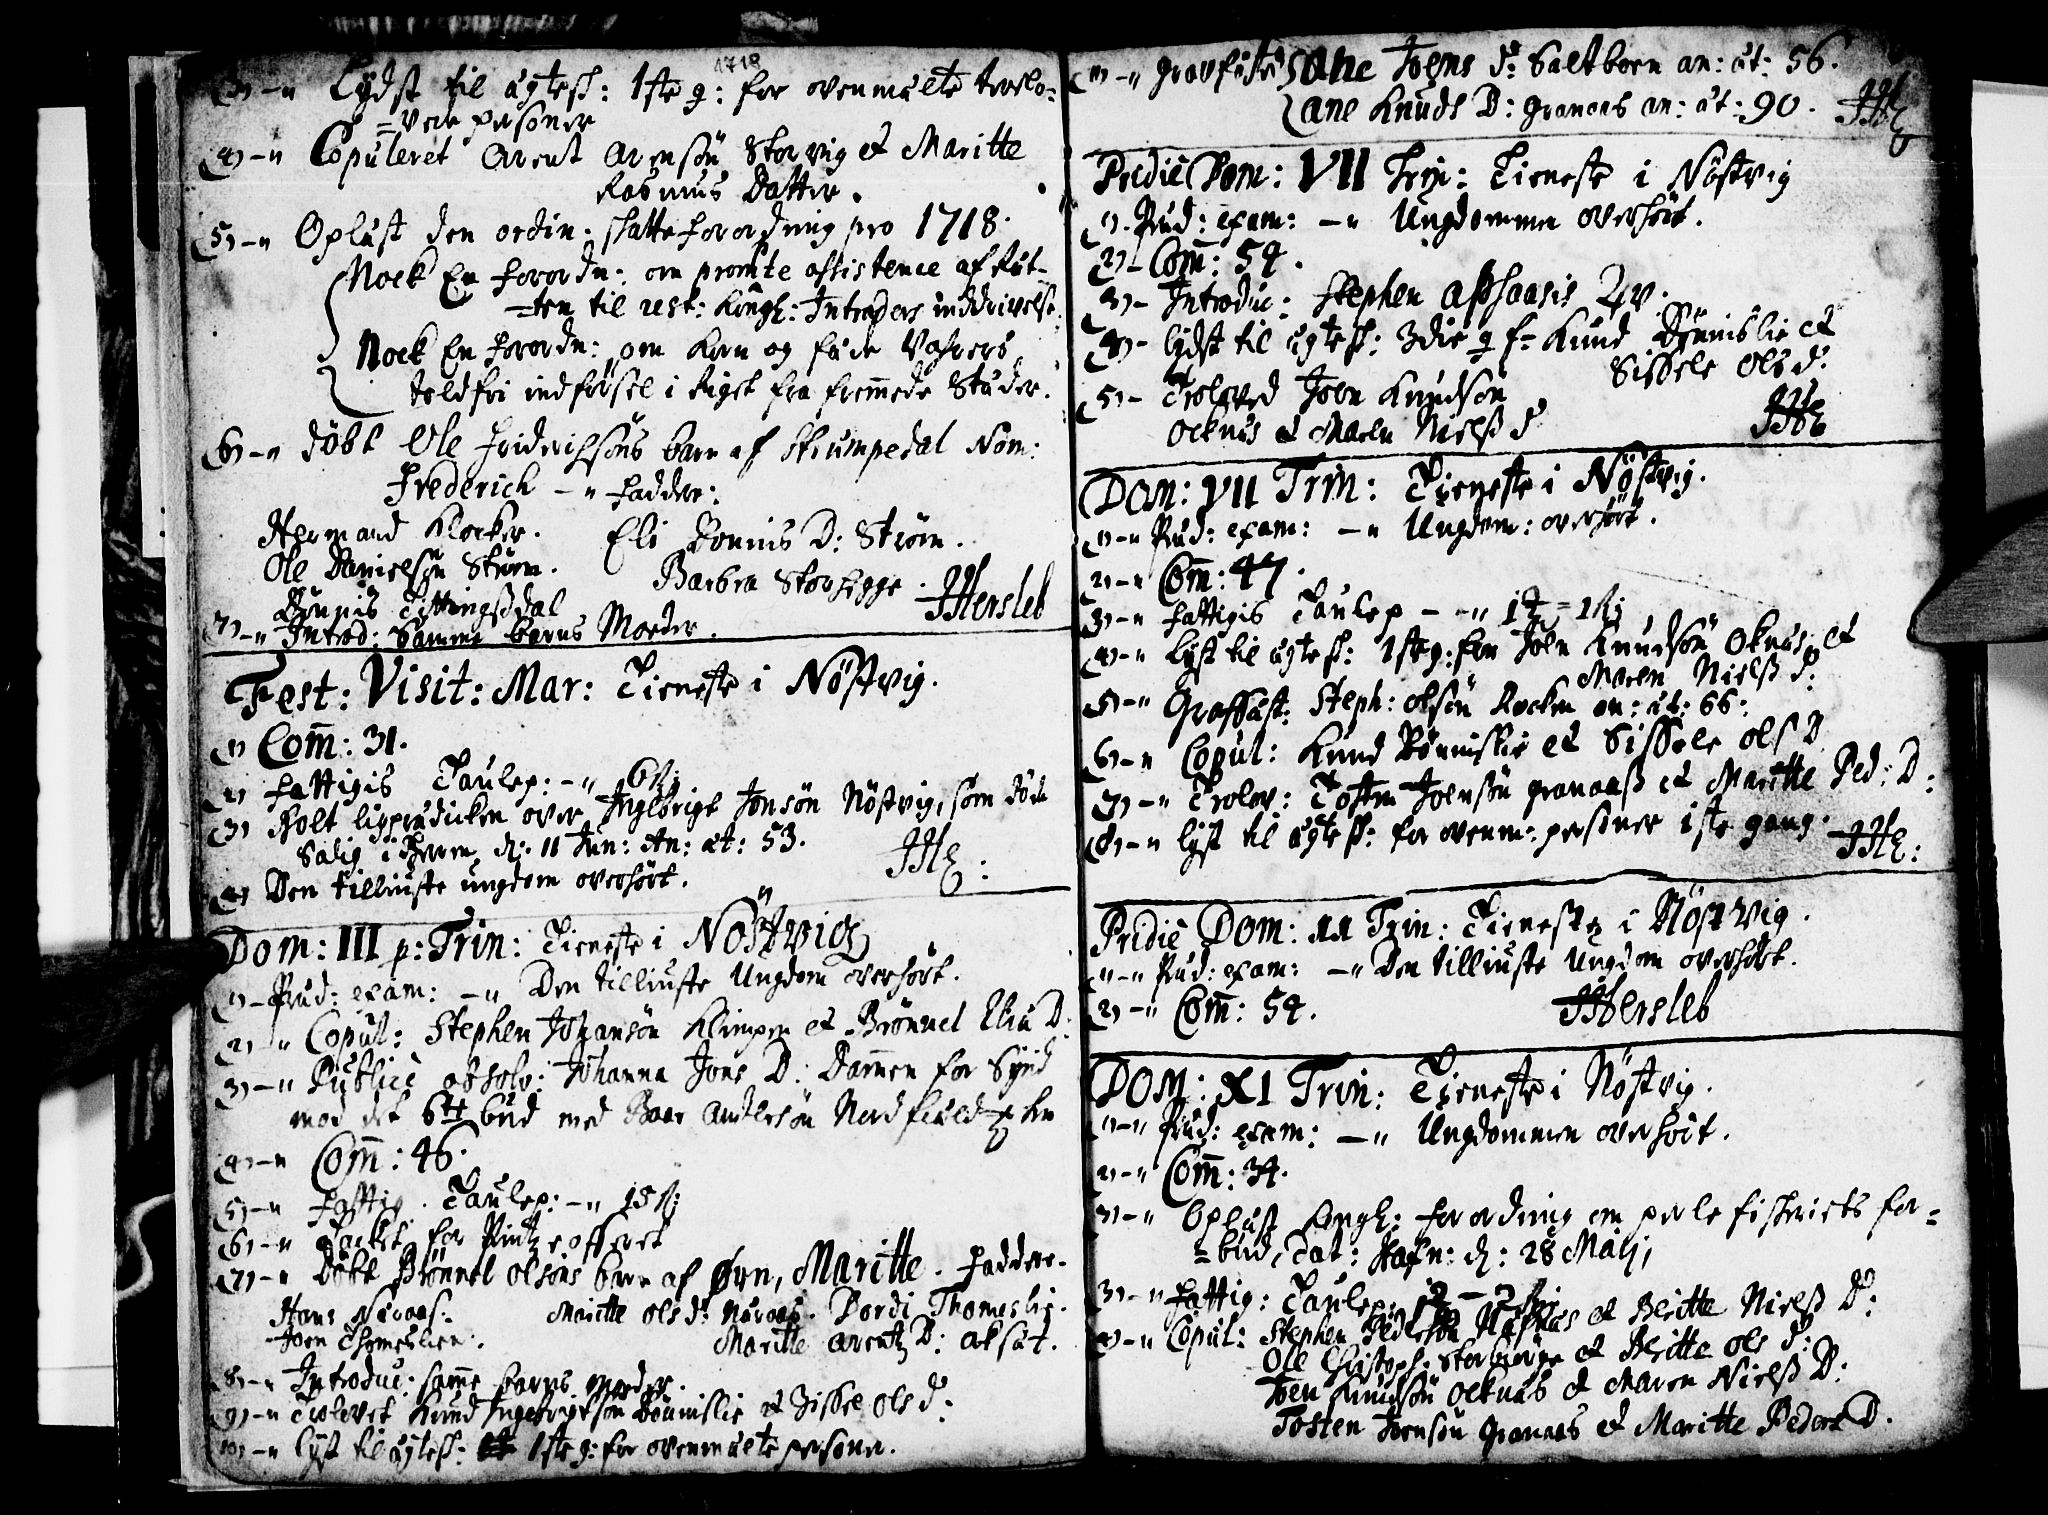 1718
3) -" Lydst til ægtesk: 1ste g: for ovenmelte trolo=
=vede personer
4) -" Copuleret Arent Arensøn Storvig et Maritte
Rasmus Datter.
5) -" Oplæst den ordin. skatteforordning pro 1718.
Nock En forordn: om promte assistence af
til rest: Kongl: Intraders inddrivelse.
Nock En forordn: om Korn og føde Vahrers
toldfri indførsel i riget fra fremmede Stæder.
6) -" døbt Ole Friderichsøns barn af Strumpedal Nom:
Frederich -" Fadder:
Hermand Klocker. Eli Bønnis D: Strøm.
Ole Danielsøn Strøm. Barbra Storhegge.
Bønnis Tøttingsdal JHersleb
7) -" Introd: Samme barns Moeder.
Fest: Visit: Mar: Tieneste i Nöstvig.
1) Com̄: 31.
2) Fattigis Taulep: -" 6 sk;
3) Holt ligprædicken over Ingebrigt Jonsøn Nöstvig, som døde
Salig i Herren, d: 11 Jun: An: æt: 53.
4) Den tilliuste ungdom overhört. JHE:
Dom: III p: Trin: Tieneste i Nöstvig
1) - Præd: exam: -" Den tilliuste Ungdom overhört.
2) -" Copul: Stephen Johansøn Klimpen et Brønnel Elia D:
3) -" Publicè absolv: Johanna Jons D: Dammen for Synd
mod det 6te bud med Boar Andersøn Nordfiæld
4) -" Com̄: 46.
5) -" Fattig. Taulep: -" 15 sk;
6) -" Tacket for offeret
7) -" Döbt Brönnel Olsöns barn af Ørn, Maritte. Faddere.
Hans Næraas. Maritte Ols d: Næraas. Dordi Thomeslie.
Joen Thomeslien. Maritte Arentz D: Aksæt.
8) -" Introduc: samme barns moder.
9) -" Trolovet Knud Ingebrigtsøn Bönnislie et Zissel Ols d:
10) -" Lyst til ægtesk: 1ste g: for ovenmelte personer.
11) -" Gravfæstet Ane Joens d: Saltboen an: æt: 56.
Ane Knuds D: Granaas an: æt: 90. JHE
Pridiè Dom: VII Trin: Tieneste i Nöstvig
1). Præd: exam: -" Ungdommen overhört.
2) - Com̄: 54.
3) - Introduc: Stephen Qv.
4) - Lydst til ægtesk: 3die g f= Knud Bønnislie et
Sissele Ols d:
5) - Trolovet Joen Knudsøn
Oeknæs et Maren Nielss d JHE
Dom: VII Trin: Tieneste i Nöstvig.
1) -" Præd: exam: -" Ungdom: overhört.
2) -" Com̄: 47.
3) -" Fattigis Taulep -"
4) -" Lyst til ægtesk: 1ste g: for Joen Knudsön Oknæs, et
Maren Nielss d:
5) -" Graffæst: Steph: Olsøn Rocken an: æt: 66:
6) -" Copul: Knud Bönnislie et Sissele Ols D
7) -" Trolov: Tosten Joensön Granaass et Maritte Ped: D:
8) -" Lyst til ægtesk: for ovenm: personer 1ste gang. JHE:
Pridiè Dom: XI Trin: Tieneste i Nöstvig.
1) -" Præd: exam: -" Den tilliuste Ungdom overhört.
2) -" Com̄: 54. JHersleb
DOM: XI Trin: Tieneste i Nöstvig.
1) -" Præd: exam: -" Ungdommen overhört.
2) -" Com̄: 34.
3) -" Oplæst Kongl: forordning om perle fischeriets for=
=bud, Dat: Hafn: d: 28 Maij,
3) -" Fattig: Taulep:
4) -" Copul: Stephen Pedersön et Britte Nielss D:
Ole Christoph: Storbierge et Britte Ols d:
Joen Knudsön Oeknæs et Maren Nielss D:
Tosten Joensön Granaas et Maritte Peders D.